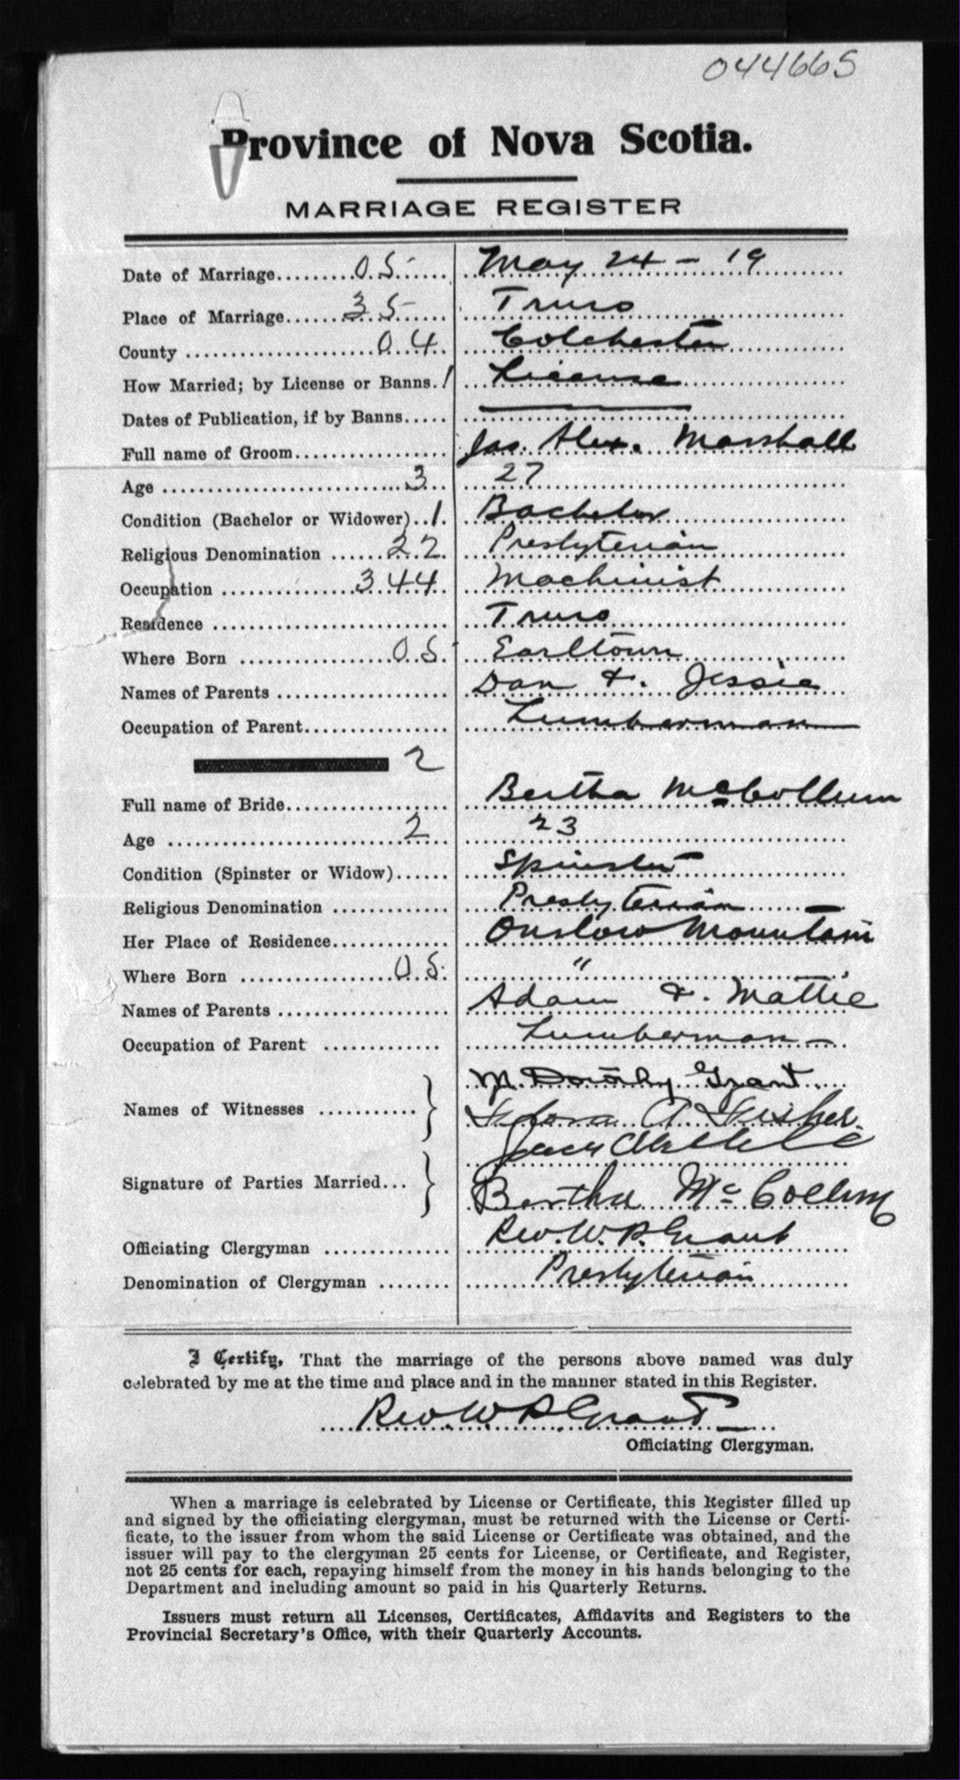 044665
Province of Nova Scotia.
MARRIAGE REGISTER
Date of Marriage.........05...... May 24 - 19
Place of Marriage......35...... Truro
County ....................04. Colchester
How Married; by License or Banns. 1 License
Dates of Publication, if by Banns..... ———
Full name of Groom.................. Jas. Alex. Marshall
Age ............................3.. 27
Condition (Bachelor or Widower)..1. Bachelor
Religious Denomination ......22. Presbyterian
Occupation ...............344. Machinist
Residence ............................ Truro
Where Born ..................05. Earltown
Names of Parents .................... Dan & Jessie
Occupation of Parent................. Lumberman
2
Full name of Bride................... Bertha McCollum
Age ............................2.. 23
Condition (Spinster or Widow)...... Spinster
Religious Denomination .............. Presbyterian
Her Place of Residence............. Onslow Mountain
Where Born ..................05. "
Names of Parents .................... Adam & Mattie
Occupation of Parent .............. Lumberman
Names of Witnesses ........... } M. Dorothy Grant
A
Signature of Parties Married... }
Bertha McCollum
Officiating Clergyman .............. Rev. W. P. Grant
Denomination of Clergyman ........ Presbyterian
I Certify, That the marriage of the persons above named was duly
celebrated by me at the time and place and in the manner stated in this Register.
Rev. W P Grant
Officiating Clergyman.
When a marriage is celebrated by License or Certificate, this Register filled up
and signed by the officiating clergyman, must be returned with the License or Certi-
ficate, to the issuer from whom the said License or Certificate was obtained, and the
issuer will pay to the clergyman 25 cents for License, or Certificate, and Register,
not 25 cents for each, repaying himself from the money in his hands belonging to the
Department and including amount so paid in his Quarterly Returns.
Issuers must return all Licenses, Certificates, Affidavits and Registers to the
Provincial Secretary's Office, with their Quarterly Accounts.